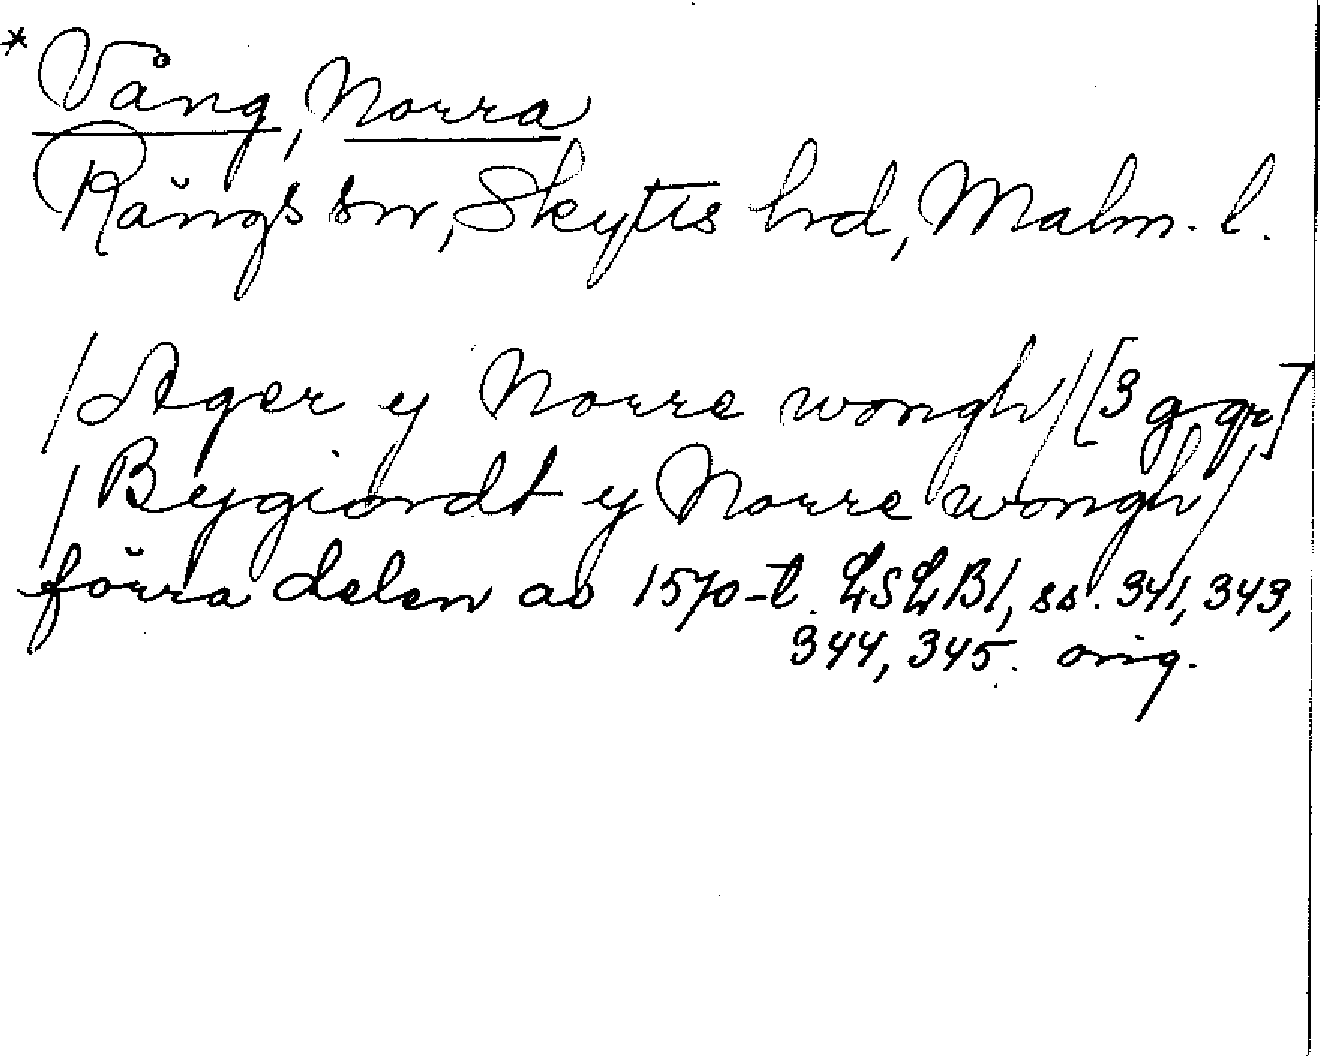 * Vång, Norra
Rängs sn, Skytts hd, Malm. l.
/Ager y Norre wongh/ [3 g,gr]
/Bygiordt y Norre wongh/
förra delen av 1570-t. LSLB1, ss. 341, 343,
344, 345. orig.